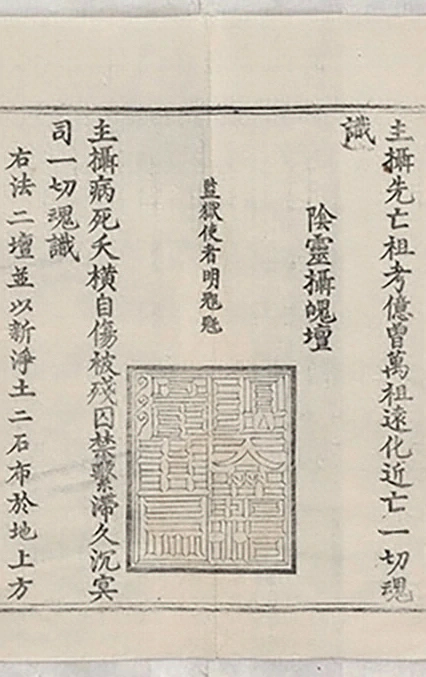 主攝先亡祖考億曾萬祖遠化近亡一切魂
識
陰靈攝魄壇
監獄使者明
主攝病死夭橫自傷被残囚禁繫滯久沉冥
司一切魂識
右法二壇並以新淨土二石布於地上方